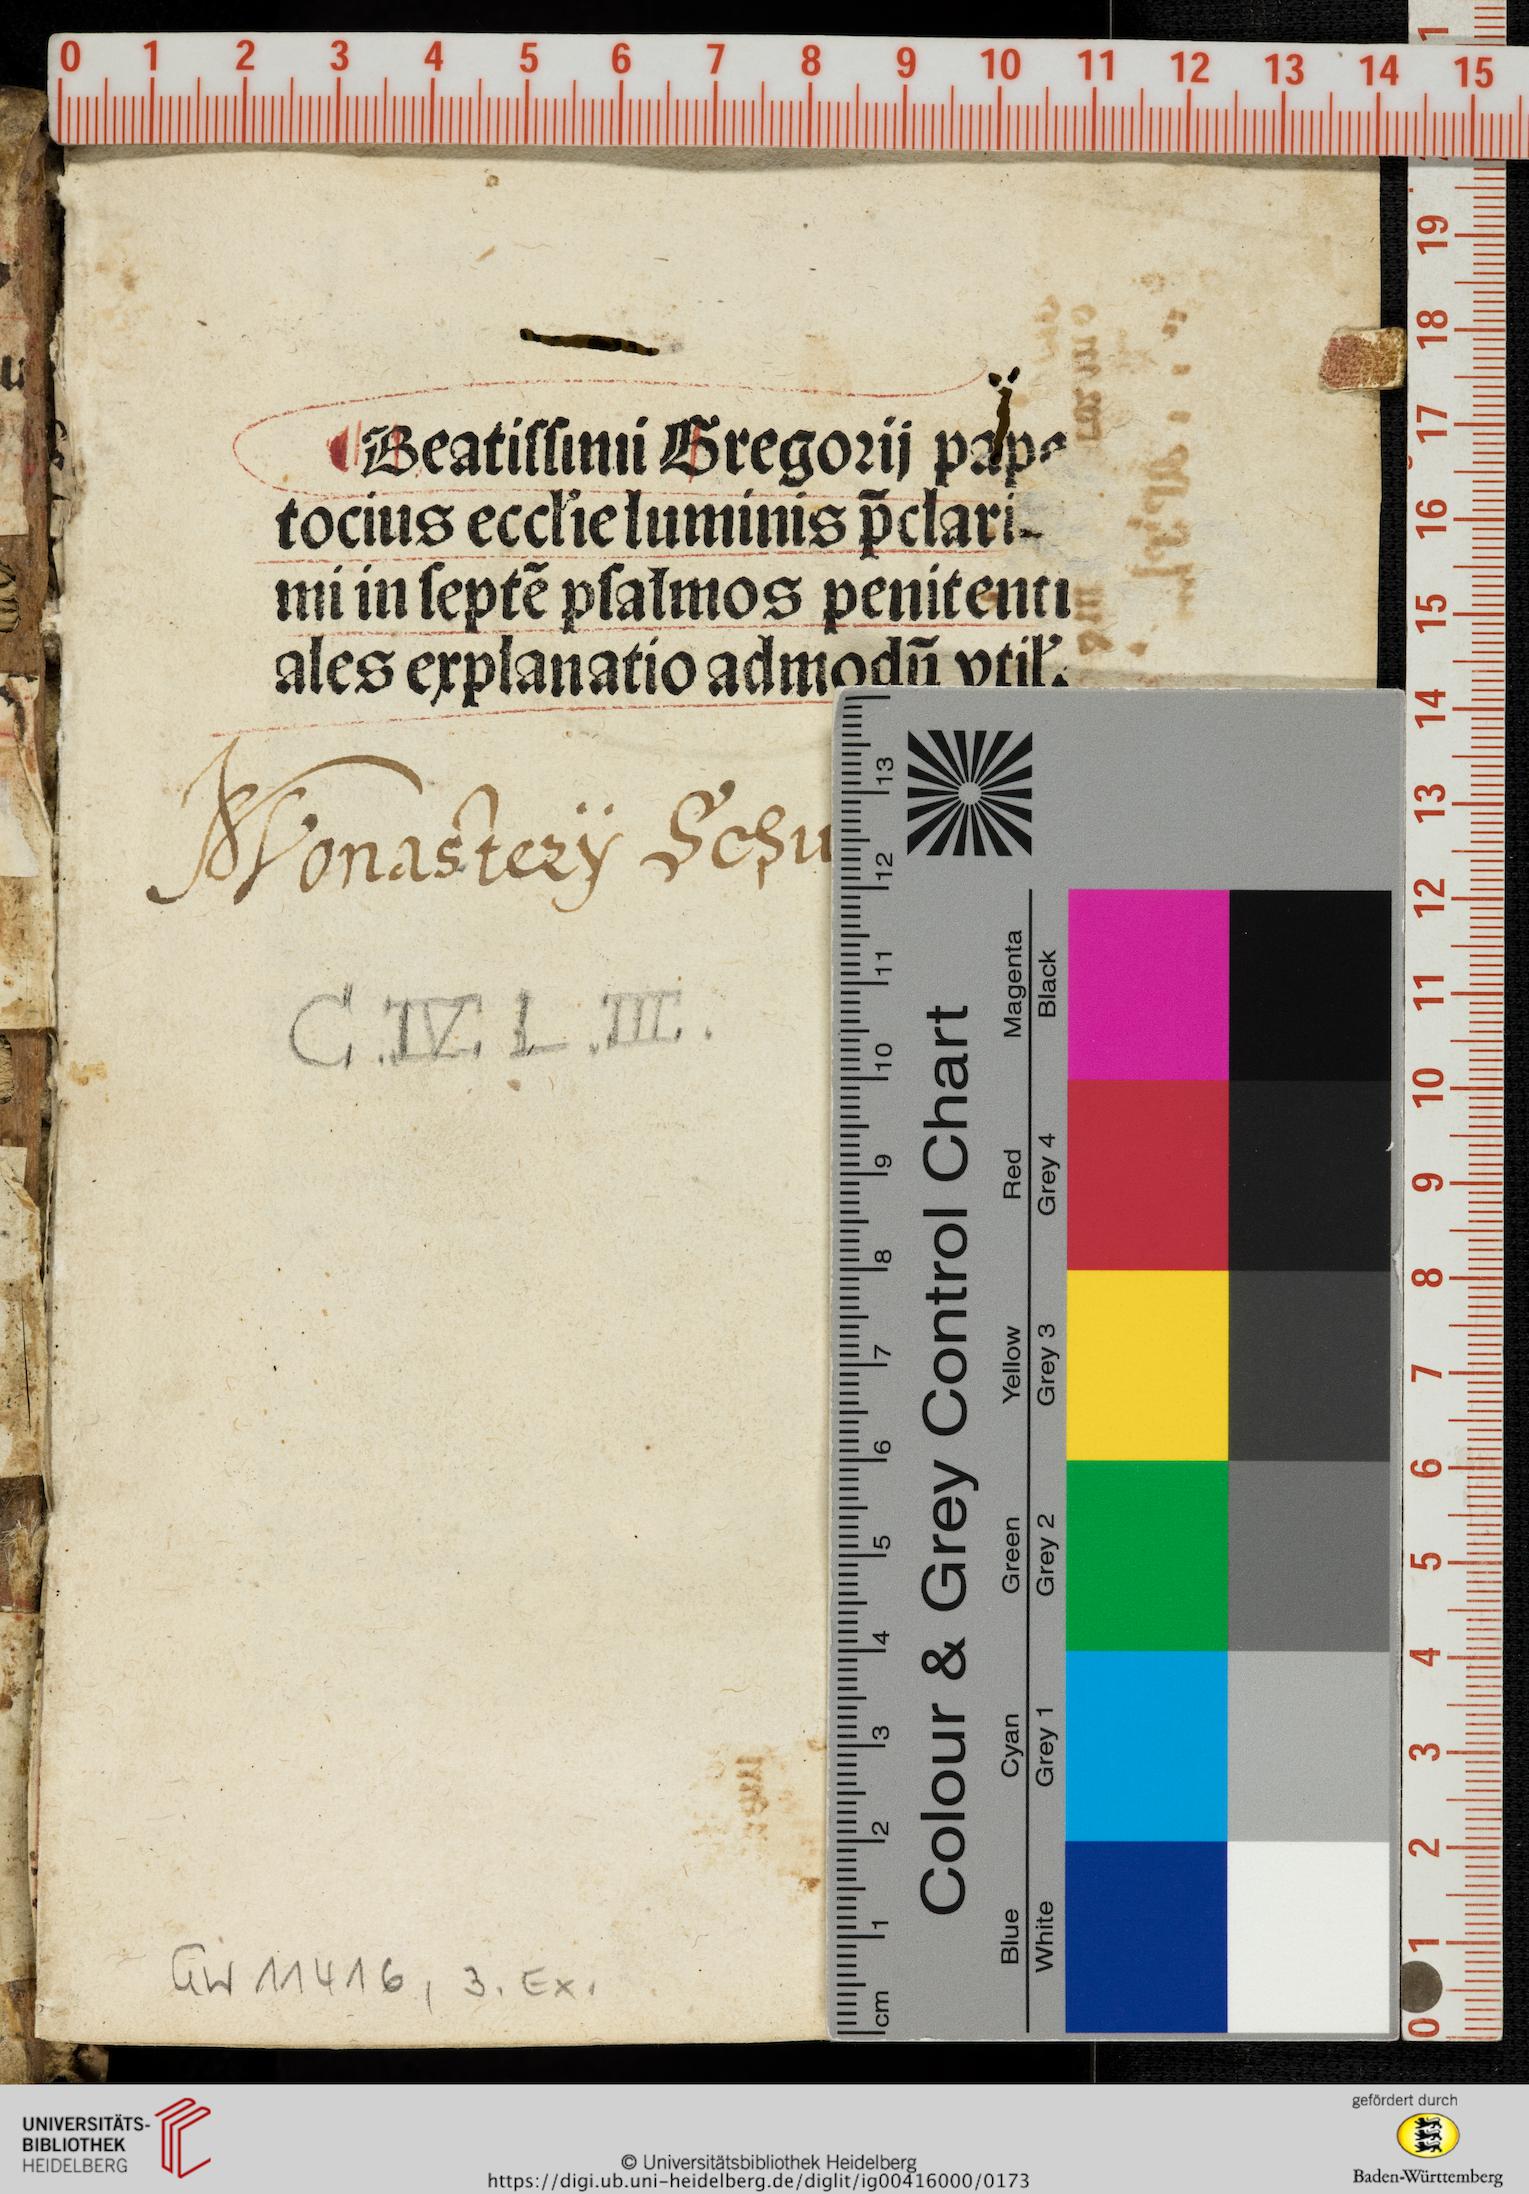 Beatissimi Gregorij pape
tocius eccl'ie luminis p̄clari-
mi in septē psalmos penitenti
ales explanatio admodū vtil'.
Monasterÿ Schu
C.IV. L.III.
GW 11416, 3. Ex.
0 1 2 3 4 5 6 7 8 9 10 11 12 13 14 15
19
18
17
16
15
14
13
12
11
10
9
8
7
6
5
4
3
2
1
0
Colour & Grey Control Chart
Blue Cyan Green Yellow Red Magenta
White Grey 1 Grey 2 Grey 3 Grey 4 Black
cm 1 2 3 4 5 6 7 8 9 10 11 12 13
UNIVERSITÄTS-
BIBLIOTHEK
HEIDELBERG
© Universitätsbibliothek Heidelberg
https://digi.ub.uni-heidelberg.de/diglit/ig00416000/0173
gefördert durch
Baden-Württemberg